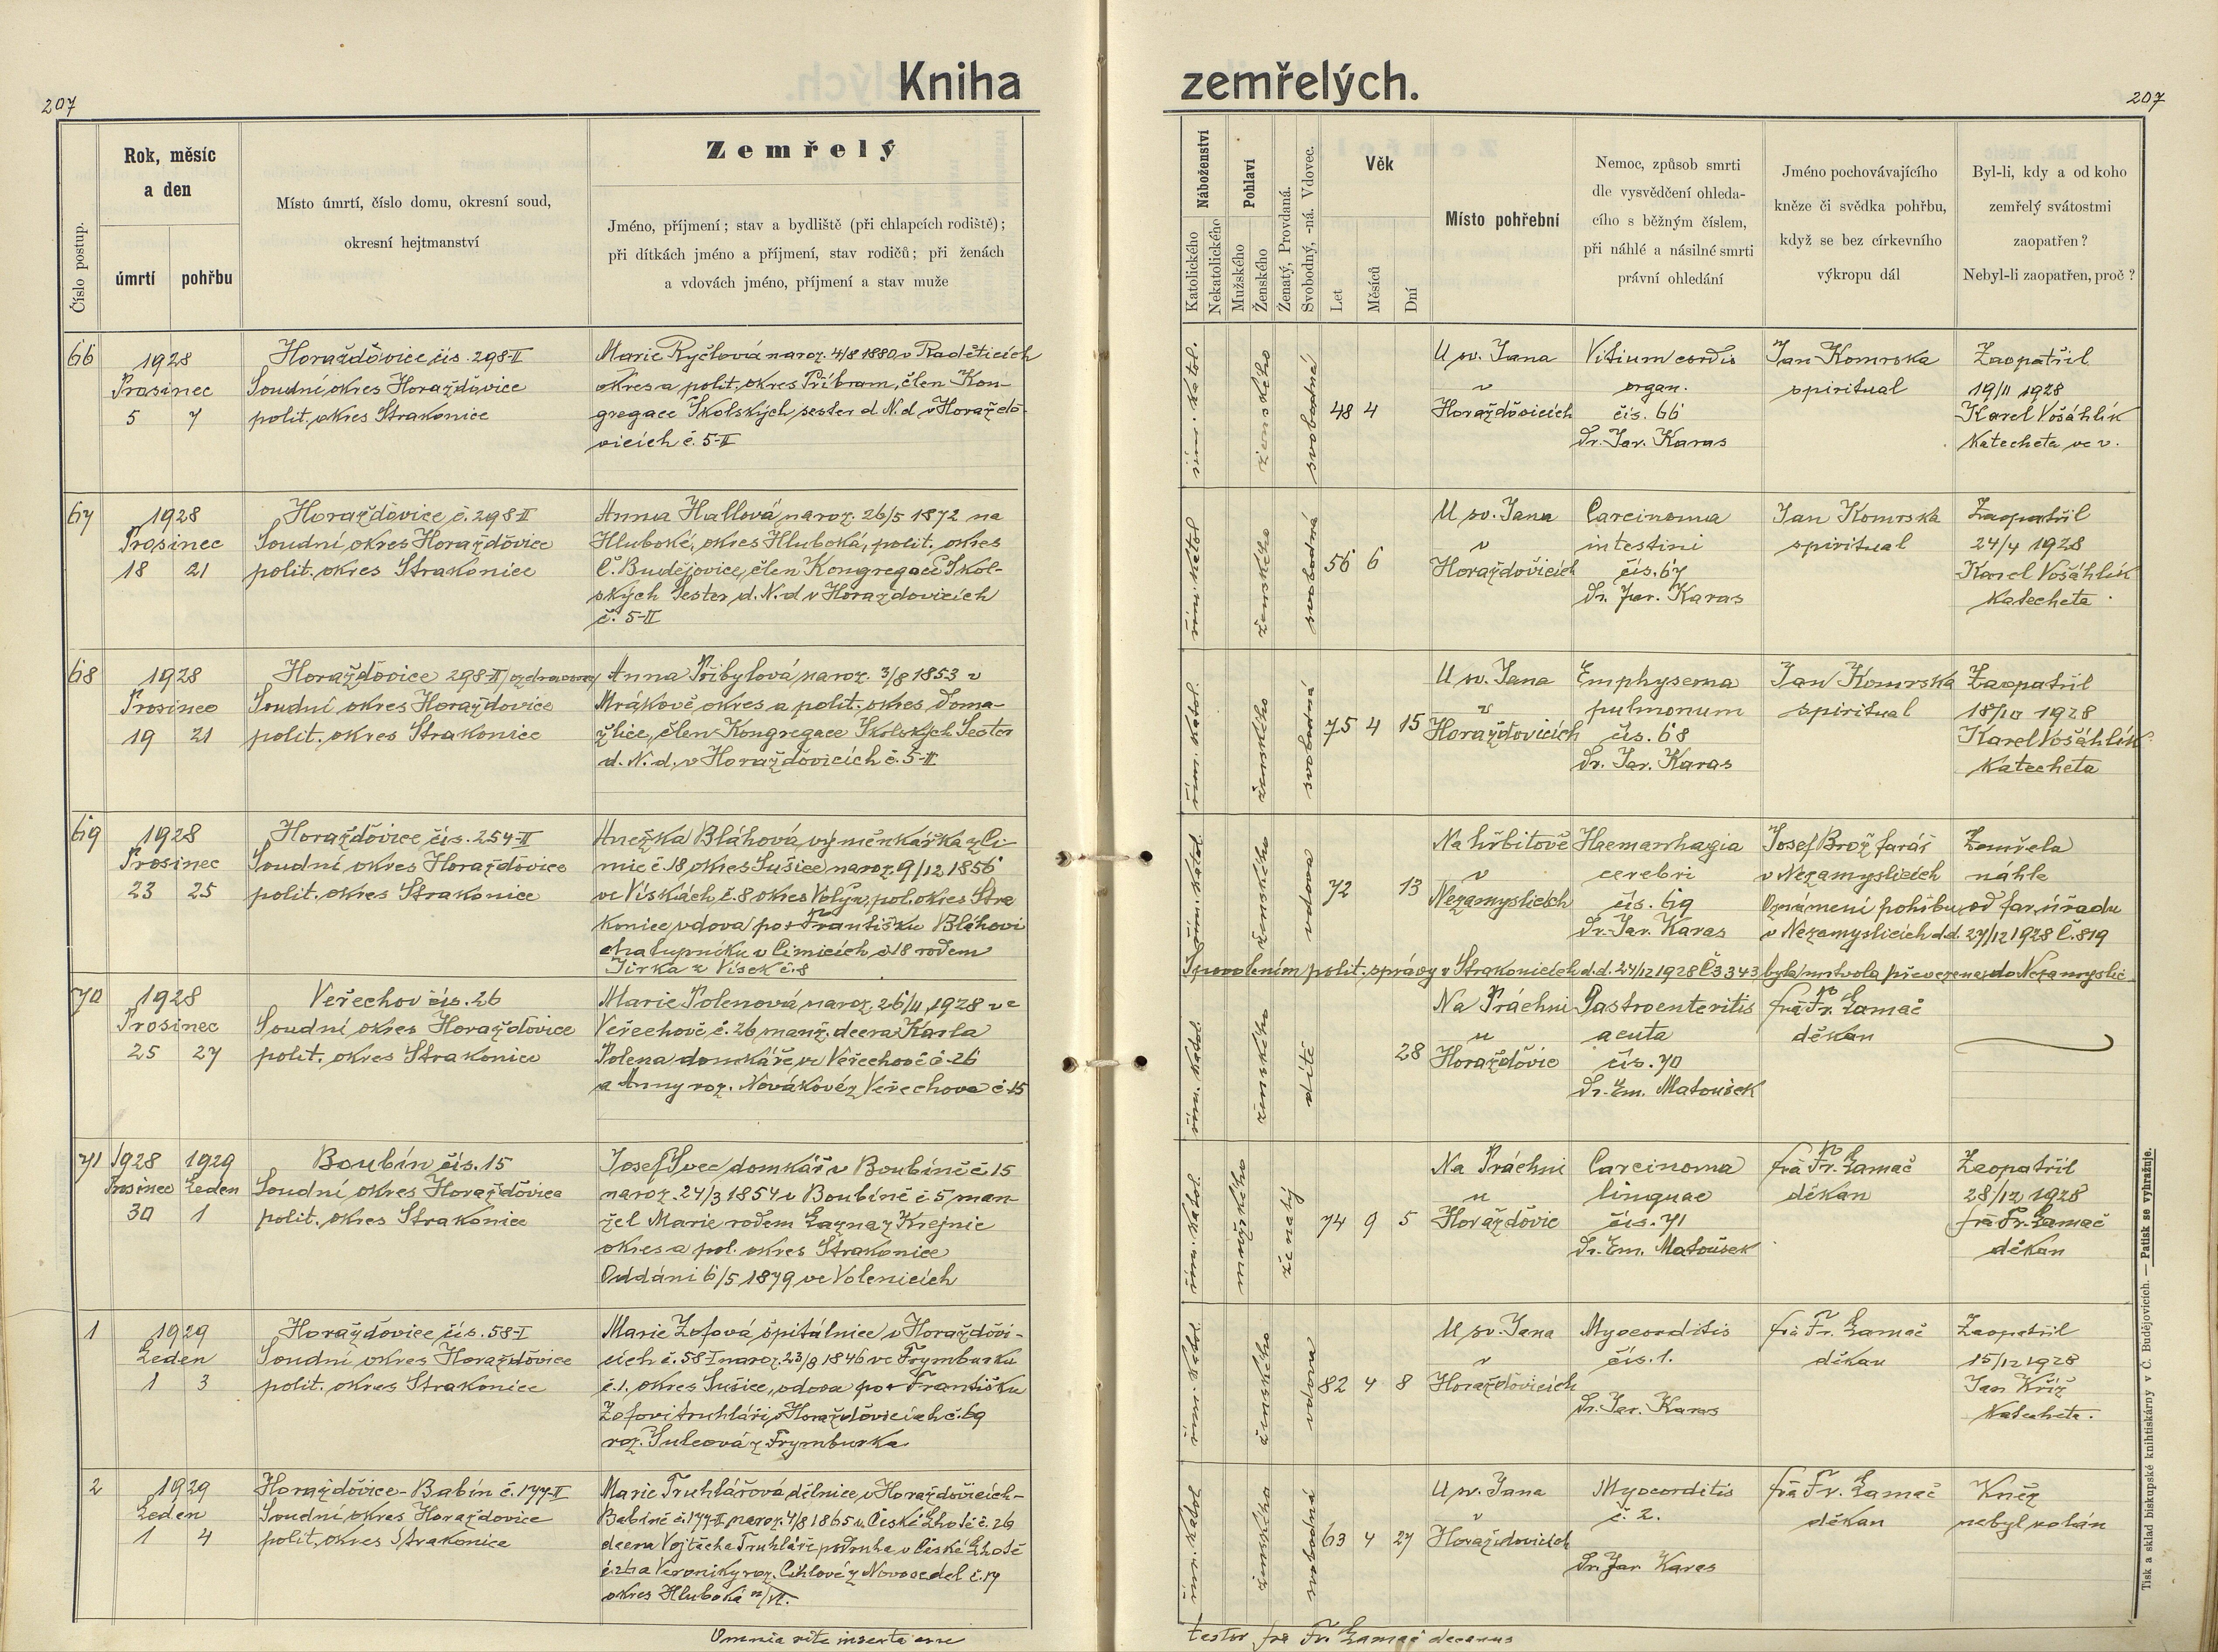 207
Kniha
zemřelých.
207
Číslo postup.
Rok, měsíc
a den
úmrtí
pohřbu
Místo úmrtí, číslo domu, okresní soud,
okresní hejtmanství
Zemřelý
Jméno, příjmení; stav a bydliště (při chlapcích rodiště);
při dítkách jméno a příjmení, stav rodičů; při ženách
a vdovách jméno, příjmení a stav muže
Náboženství
Katolického
Nekatolického
Pohlaví
Mužského
Ženského
Ženatý, Provdaná.
Svobodný, -ná. Vdovec.
Věk
Let
Měsíců
Dní
Místo pohřební
Nemoc, způsob smrti
dle vysvědčení ohleda-
cího s běžným číslem,
při náhlé a násilné smrti
právní ohledání
Jméno pochovávajícího
kněze či svědka pohřbu,
když se bez církevního
výkropu dál
Byl-li, kdy a od koho
zemřelý svátostmi
zaopatřen?
Nebyl-li zaopatřen, proč?
66
1928
Prosinec
5 7
Horažďovice čís. 298-II
Soudní okres Horažďovice
polit. okres Strakonice
Marie Ryčlová naroz. 4/8 1880 v Raděticích
okres a polit. okres Příbram, člen Kon-
gregace Školských sester d. N. d v Horažďo-
vicích č. 5-II
řím. katol.
ženského
svobodná
48 4
U sv. Jana
v
Horažďovicích
Vitium cordis
organ.
čís. 66
Dr. Jar. Karas
Jan Komrska
spirituál
Zaopatřil
19/11 1928
Karel Vošáhlík
Katecheta ve v.
67
1928
Prosinec
18 21
Horažďovice č. 298 II
Soudní okres Horažďovice
polit. okres Strakonice
Anna Hallová naroz. 26/5 1872 na
Hluboké, okres Hluboká, polit. okres
Č. Budějovice, člen Kongregace Škol-
ských Sester d. N. d v Horažďovicích
č. 5-II
řím. katol
ženského
svobodná
56 6
U sv. Jana
v
Horažďovicích
Carcinoma
intestini
čís. 67
Dr. Jar. Karas
Jan Komrska
spirituál
Zaopatřil
24/4 1928
Karel Vošáhlík
Katecheta
68
1928
Prosinec
19 21
Horažďovice 298-II
Soudní okres Horažďovice
polit. okres Strakonice
Anna Přibylová naroz. 3/8 1853 v
Mrákově okres a polit. okres Doma-
žlice, člen Kongregace Školských Sester
d. N. d. v Horažďovicích č. 5-II
řím. katol.
ženského
svobodná
75 4 15
U sv. Jana
v
Horažďovicích
Emphysema
pulmonum
čís. 68
Dr. Jar. Karas
Jan Komrska
spirituál
Zaopatřil
18/10 1928
Karel Vošáhlík
Katecheta
69
1928
Prosinec
23 25
Horažďovice čís. 254-II
Soudní okres Horažďovice
polit. okres Strakonice
Anežka Bláhová výměnkářka z Či-
mic č 18 okres Sušice naroz. 9/12 1856
ve Vískách č. 8 okres Volyň, pol. okres Stra
konice vdova po + Františku Bláhovi
chalupníku v Čimicích č 18 rodem
Jirka z Vísek č. 8
řím. katol.
ženského
vdova
72 13
Na hřbitově
v
Nezamyslicích
Haemorrhagia
cerebri
čís. 69
Dr. Jar. Karas
Josef Brož farář
v Nezamyslicích
Zemřela
náhle
Oznámení pohřbu od far. úřadu
v Nezamyslicích d.d. 27/12 1928 č. 819
S povolením polit. správy v Strakonicích d.d. 24/12 1928 č 3343 byla mrtvola převezena do Nezamyslic
70
1928
Prosinec
25 27
Veřechov čís. 26
Soudní okres Horažďovice
polit. okres Strakonice
Marie Polenová naroz. 26/11 1928 ve
Veřechově č. 26 manž. dcera Karla
Polena domkáře ve Veřechově č 26
a Anny roz. Novákové z Veřechova č 15
řím. katol.
ženského
dítě
28
Na Práchni
u
Horažďovic
Gastroenteritis
acuta
čís. 70
Dr. Em. Matoušek
frà Fr. Lamač
děkan
71
1928 1929
Prosinec Leden
30 1
Boubín čís. 15
Soudní okres Horažďovice
polit. okres Strakonice
Josef Švec domkář v Boubíně č 15
naroz. 24/3 1854 v Boubíně č 5 man-
žel Marie rodem z Krejnic
okres a pol. okres Strakonice
Oddáni 6/5 1879 ve Volenicích
řím. katol.
mužského
ženatý
74 9 5
Na Práchni
u
Horažďovic
Carcinoma
linguae
čís. 71
Dr. Em. Matoušek
frà Fr. Lamač
děkan
Zaopatřil
28/12 1928
frà Fr. Lamač
děkan
1
1929
Leden
1 3
Horažďovice čís. 58-I
Soudní okres Horažďovice
polit. okres Strakonice
Marie Žofová špitálnice v Horažďovi-
cích č. 58 I naroz. 23/8 1846 ve Frymburku
č. 1. okres Sušice, vdova po + Františku
Žofovi truhláři v Horažďovicích č. 69
roz. Šulcová z Frymburka
řím. katol.
ženského
vdova
82 4 8
U sv. Jana
v
Horažďovicích
Myocorditis
čís. 1.
Dr. Jar. Karas
frà Fr. Lamač
děkan
Zaopatřil
15/12 1928
Jan Kříž
Katecheta.
2
1929
Leden
1 4
Horažďovice-Babín č. 177-II
Soudní okres Horažďovice
polit. okres Strakonice
Marie Truhlářová dělnice v Horažďovicích-
Babíně č. 177-II naroz. 4/8 1865 v České Lhotě č. 26
dcera Vojtěcha Truhláře podruha v České Lhotě
č. 26 a Veroniky roz. Cihlové z Novosedel č. 17
okres Hluboká n/Vl.
řím. katol.
ženského
svobodná
63 4 27
U sv. Jana
v
Horažďovicích
Myocorditis
č. 2.
Dr. Jar. Karas
frà Fr. Lamač
děkan
Kněz
nebyl volán
Omnia rite inserta esse
testor frà Fr. Lamač decanus
Tisk a sklad biskupské knihtiskárny v Č. Budějovicích. — Patisk se vyhražuje.